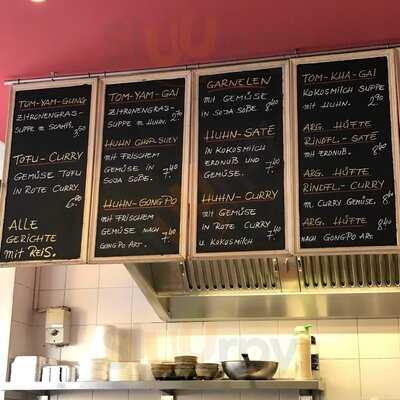 TOM-YAM-GUNG
ZITRONENGRAS-
SUPPE M. SCAMPI.
3,50
TOFU-CURRY
GEMÜSE TOFU
IN ROTE CURRY.
ALLE
GERICHTE
MIT REIS.
TOM-YAM-GAI
ZITRONENGRAS-
SUPPE M. HUHN.
HUHN CHOP SUEY
MIT FRISCHEM
GEMÜSE IN
SOJA SOßE.
7,40
HUHN-GONG PO
MIT FRISCHEM
GEMÜSE NACH
GONG PO ART.
7,40
GARNELEN
MIT GEMÜSE
IN SOJA SOßE.
8,40
HUHN-SATÉ
IN KOKOSMILCH
ERDNUß UND
GEMÜSE.
7,40
HUHN-CURRY
MIT GEMÜSE
IN ROTE CURRY
U. KOKOSMILCH
7,40
TOM-KHA-GAI
KOKOSMILCH SUPPE
MIT HUHN.
2,90
ARG. HÜFTE
RINDFL.-SATÉ
MIT ERDNUß.
8,40
ARG. HÜFTE
RINDFL.-CURRY
M. CURRY GEMÜSE.
8,40
ARG. HÜFTE
NACH GONG PO ART.
8,40